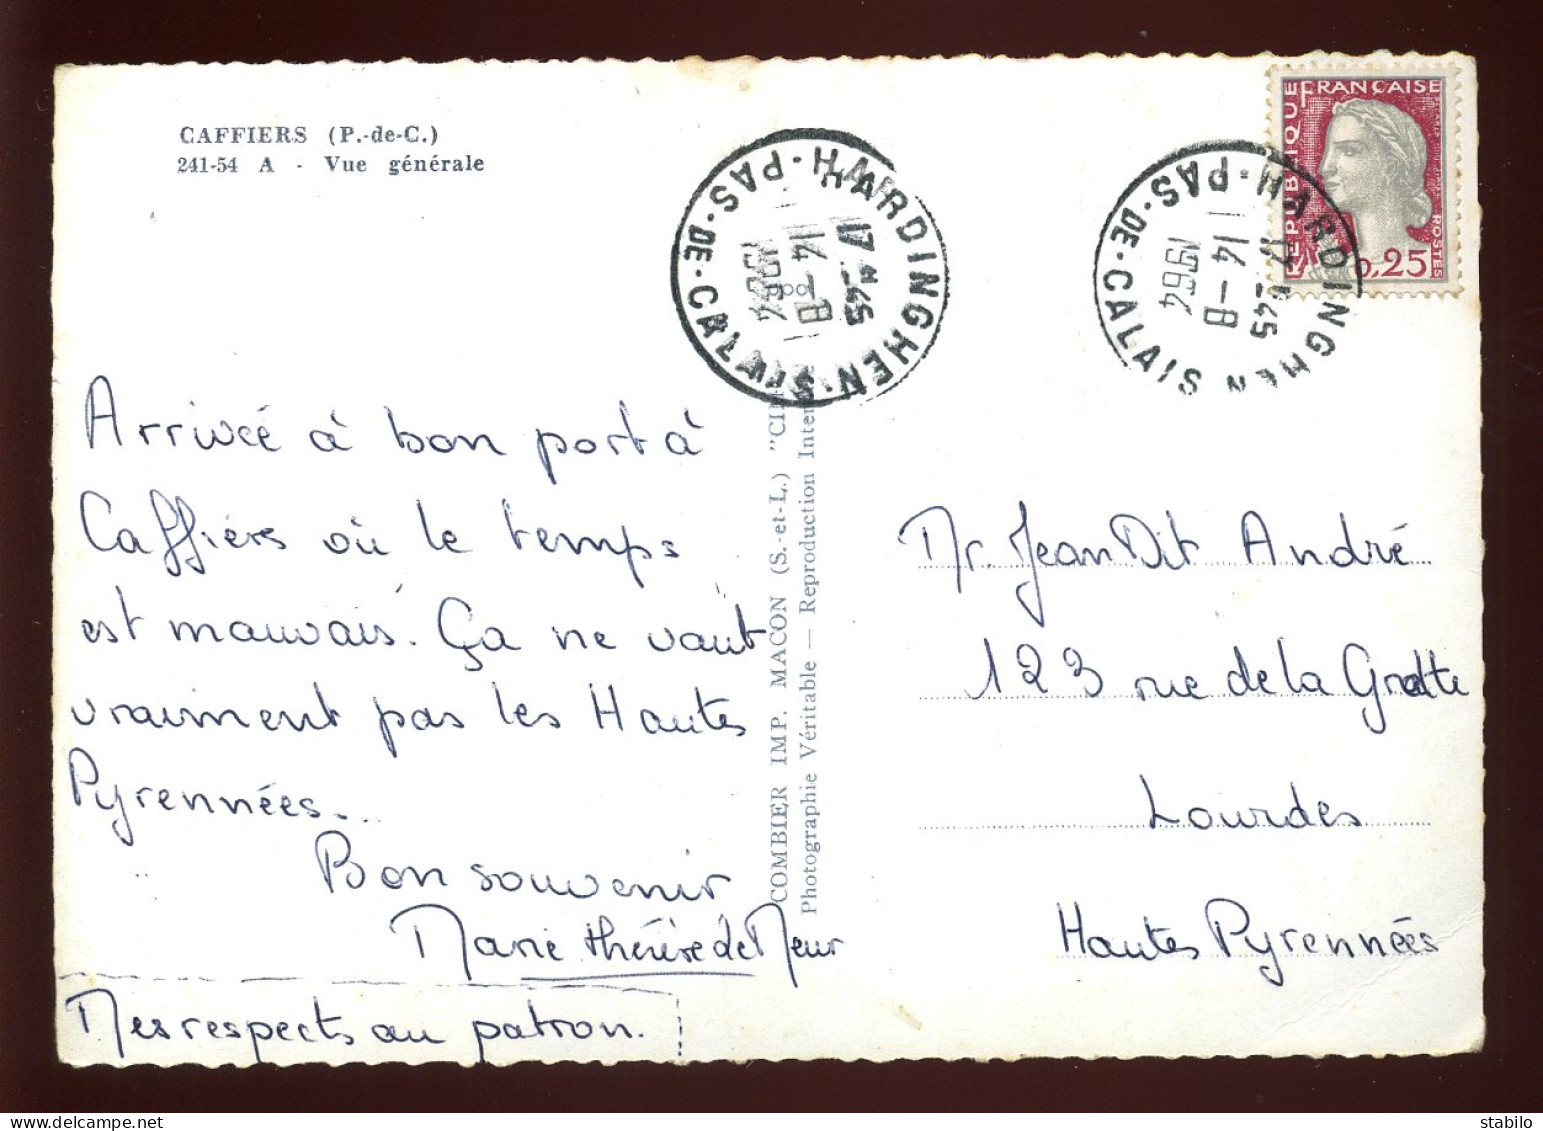 CAFFIERS (P.-de-C.)
241-54 A - Vue générale
Arrivée à bon port à
Caffiers où le temps
est mauvais. Ça ne vaut
vraiment pas les Hautes
Pyrennées...
Bon souvenir
Marie thérèse de Meur
Mes respects au patron.
COMBIER IMP. MACON (S.-et-L.) "CI
Photographie Véritable — Reproduction Inter
HARDINGHEN · PAS-DE-CALAIS
17 H 45
14 - 8
1964
HARDINGHEN · PAS-DE-CALAIS
17 H 45
14 - 8
1964
REPUBLIQUE
FRANÇAISE
POSTES
0,25
Mr. Jean Dit André
123 rue de la Grotte
Lourdes
Hautes Pyrennées
stabilo